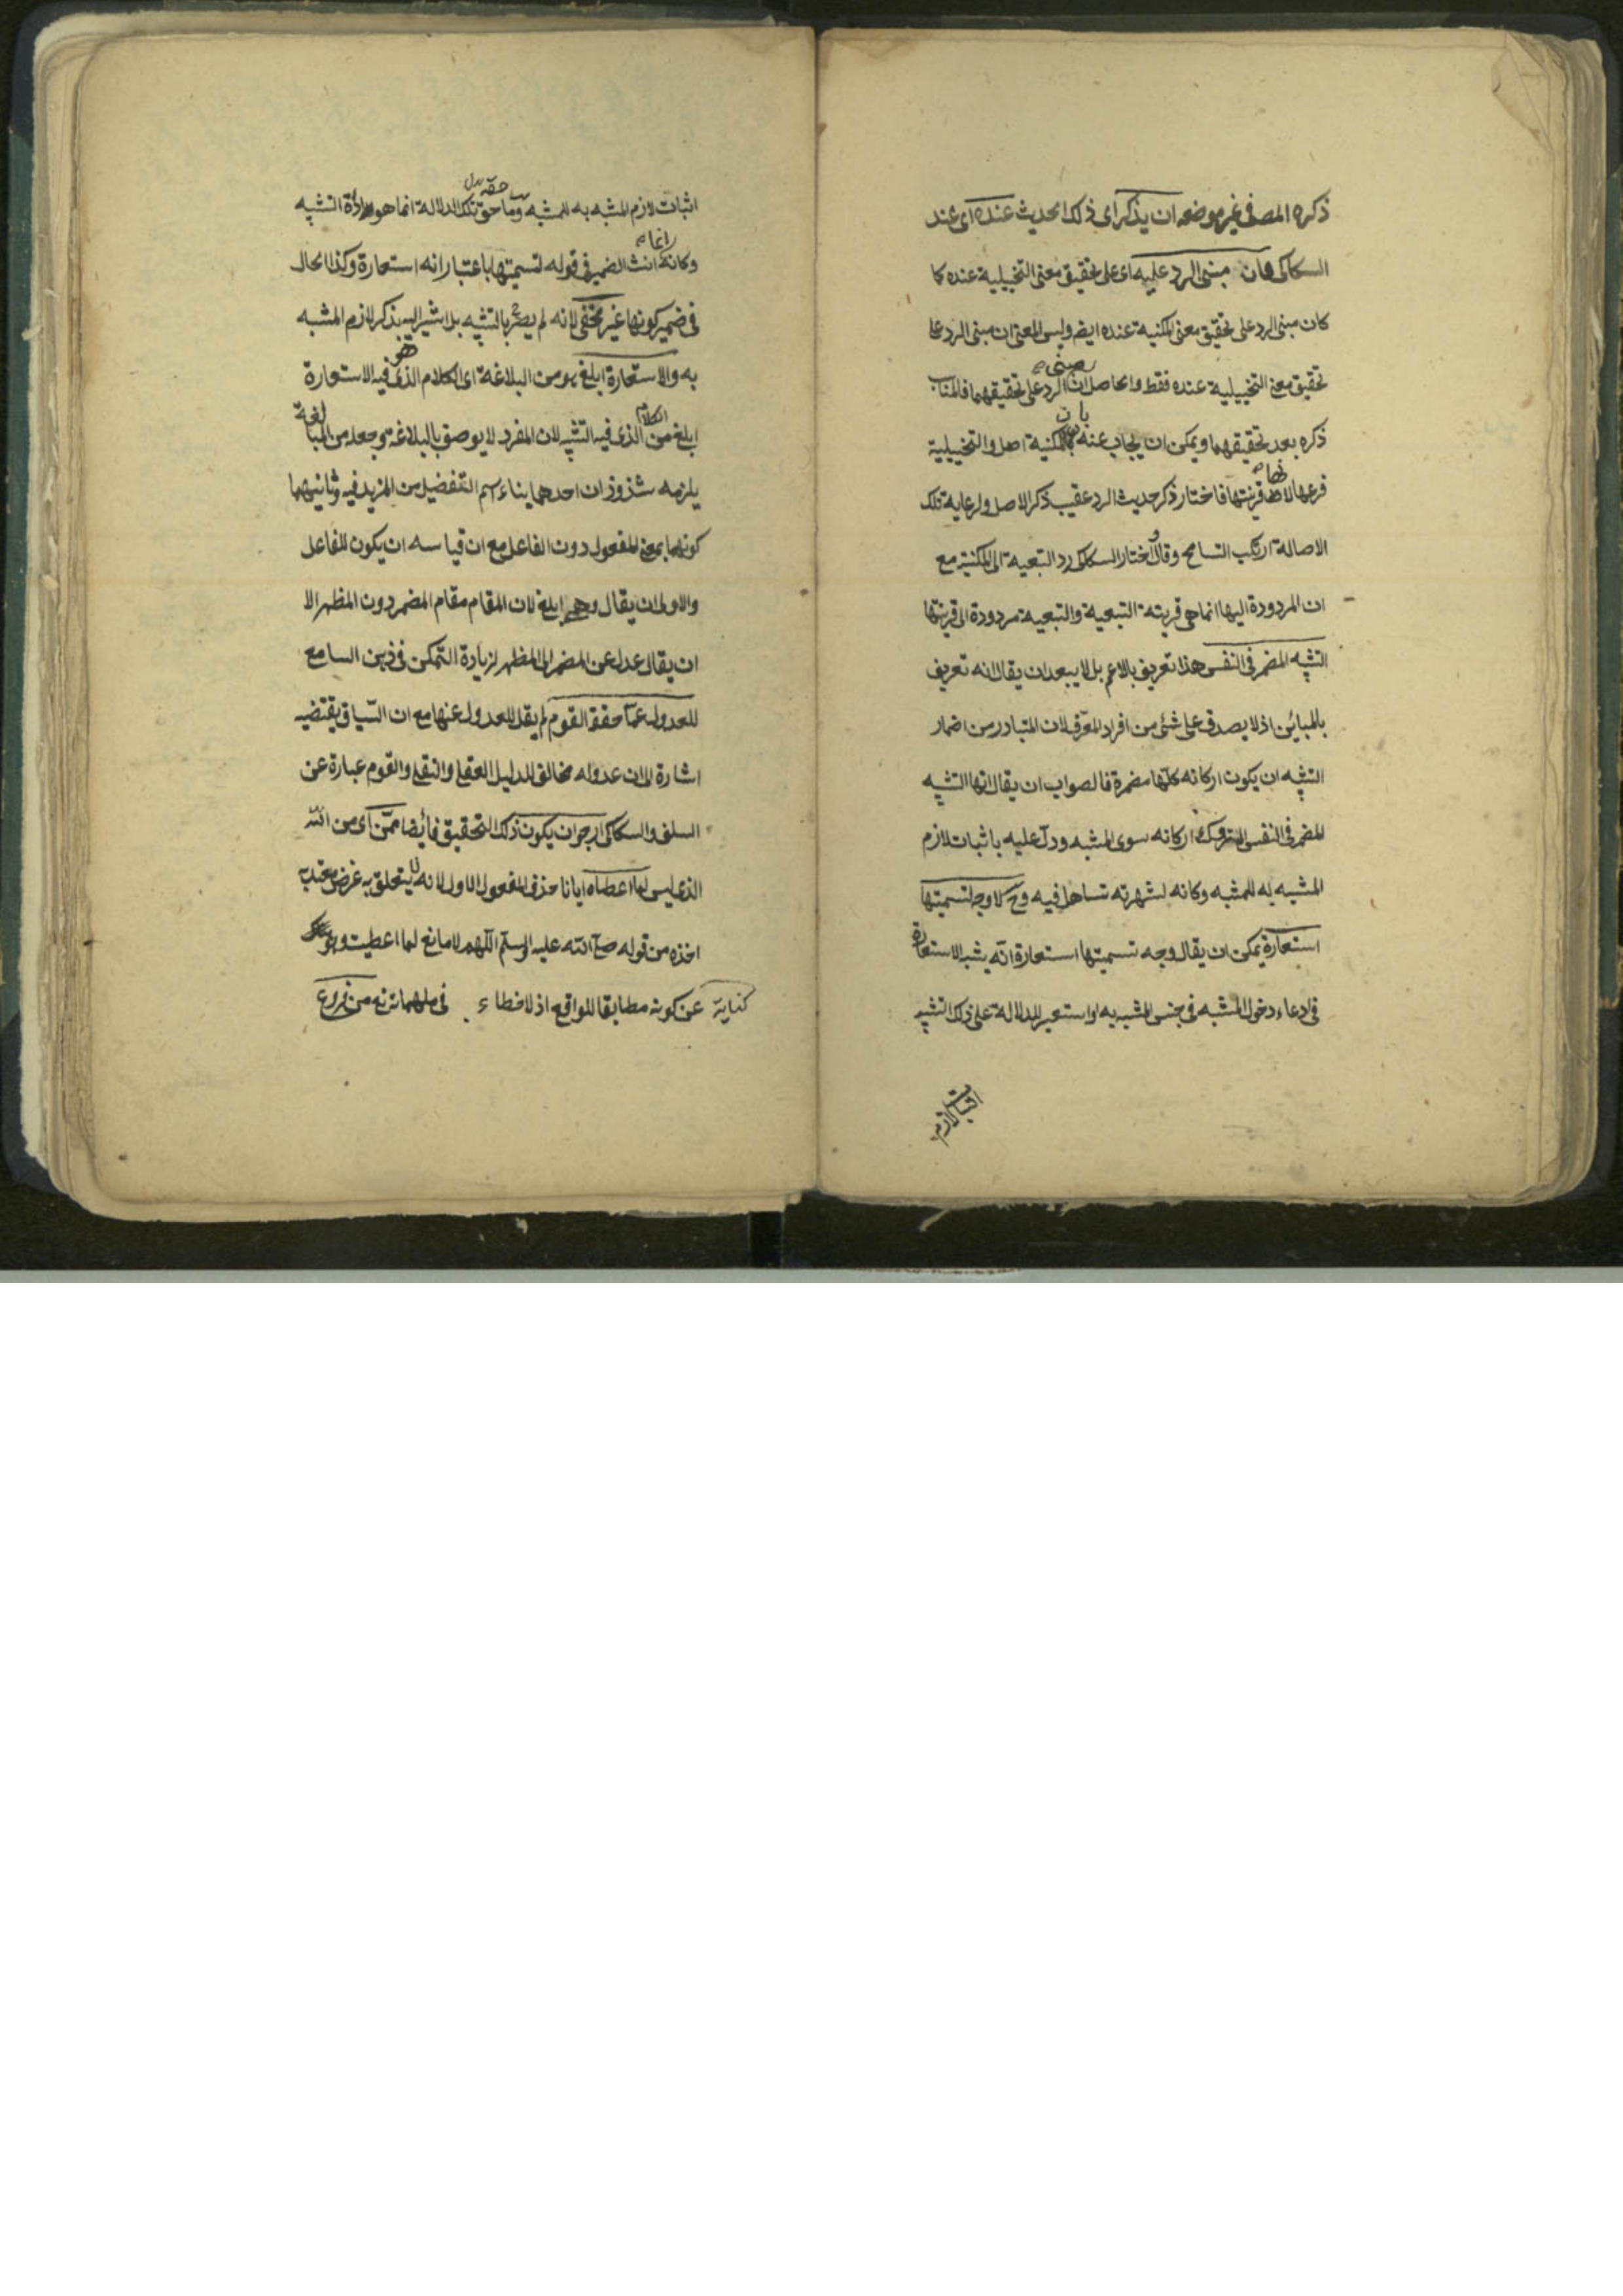 ذكره المص في غير موضعه ان يذكر اى ذلك الحديث عنده اى عند
السكاكى فان مبنى الرد عليه اى على تحقيق معنى التخييلية عنده كما
كان مبنى الرد على تحقيق معنى المكنية عنده ايضا وليس المعنى ان مبنى الرد على
تحقيق معنى التخييلية عنده فقط والحاصل ان مبنى الرد على تحقيقهما فالمناسب
ذكره بعد تحقيقهما ويمكن ان يجاب عنه بان المكنية اصل والتخييلية
فرعها لانها قرينتها فاختار ذكر حديث الرد عقيب ذكر الاصل ولرعاية تلك
الاصالة ارتكب التسامح وقال اختار السكاكى رد التبعية الى المكنية مع
ان المردودة اليها انما هى قرينة التبعية والتبعية مردودة الى قرينتها
التشبيه المضمر في النفس هذا تعريف بالاعم بل لا يبعد ان يقال انه تعريف
بالمباين اذ لا يصدق على شئ من افراد المعرف لان المتبادر من اضمار
التشبيه ان يكون اركانه كلها مضمرة فالصواب ان يقال انها التشبيه
المضمر في النفس المتروك اركانه سوى المشبه ودل عليه باثبات لازم
المشبه به للمشبه وكانه لشهرته تساهل فيه وح لا وجه لتسميتها
استعارة يمكن ان يقال وجه تسميتها استعارة انه يشبه الاستعارة
في ادعاء دخول المشبه في جنس المشبه به او استعير للدلالة على ذلك التشبيه
اثبات لازم
اثبات لازم المشبه به للمشبه وما حق تلك الدلالة انما هو اداة التشبيه
وكانه انما انث الضمير في قوله لتسميتها باعتبار انه استعارة وكذا الحال
في ضمير كونها غير مخفى لانه لم يصرح بالتشبيه بل اشير اليه بذكر لازم المشبه
به والاستعارة ابلغ هو من البلاغة اى الكلام الذى هو فيه الاستعارة
ابلغ من الكلام الذى فيه التشبيه لان المفرد لا يوصف بالبلاغة وجعله من المبالغة
يلزمه شذوذان احدهما بناء اسم التفضيل من المزيد فيه وثانيهما
كونهما بمعنى المفعول دون الفاعل مع ان قياسه ان يكون للفاعل
والاولى ان يقال وهى ابلغ لان المقام مقام المضمر دون المظهر الا
ان يقال عدل عن المضمر الى المظهر لزيادة التمكن في ذهن السامع
للعدول عما حققه القوم لم يقل للعدول عنها مع ان السياق يقتضيه
اشارة الى ان عدوله مخالف للدليل العقلى والنقلى والقوم عبارة عن
السلف والسكاكى ارجو ان يكون ذلك التحقيق فائضا ممن اى من الله
الذى ليس لما اعطاه ايانا حذف المفعول الاول لانه لا يتعلق به غرض معتد به
اخذه من قوله صلى الله عليه وسلم اللهم لا مانع لما اعطيت وهو
كناية عن كونه مطابقا للواقع اذ لا خطاء في من فروع